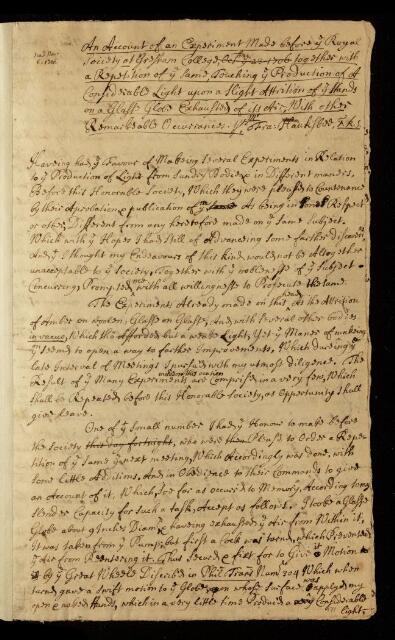 read Nov:
6. 1706.
An Account of an Experiment Made before yͤ Royal
Society at Gresham College, together with
a Repetition of yͤ Same, Touching yͤ Production of A
Considerable Light upon a slight Attrition of yͤ Hands
on a Glass Globe Exhausted of its Air, With other
Remarkable Occurrances. By Mʳ Fra: Hauksbee, F.R.S.
Haveing had yͤ Favour of Makeing Several Experiments in Relation
to yͤ Production of Light from Sundry Bodies in Different maners,
Before this Honorable Society, Which they were pleased to Countenance
by their Aprobation & publication of yᵐ, As being in some Respect
or other, Different from any heretofore made on yͤ same Subject.
Which with yͤ Hopes I had Still of Advancing some farther discoveries
And yᵗ I thought my Endeavours of this kind, would not be Altogether
unacceptable to yͤ Society, Together with yͤ nobleness of yͤ Subject
Concurring, Prompted me with all willingness to Prosecute the same.
The Experiments Already made on this head, As the Attrition
of Amber on woolen; Glass on Glass, And with Several other Bodies
in vacuo, Which tho Afforded but a weake Light, Yet yͤ Maner of makeing
yᵐ seem'd to open a way to farther Improvements, Which dureing yͤ
late Interval of Meetings I pursued with my utmost diligence. The
Result of yͤ Many Experiments made on this ocation are Comprised in a very few, Which
shall be Repeated before this Honorable Society, as Oppertunity shall
give leave.
One of yͤ Small number I had yͤ Honour to make before
the Society this day fortnight, who were then pleas'd to Order a Repe-
tition of yͤ same yͤ next meeting, Which Accordingly was done, with
some little Additions, And in Obedience to their Commands to give
an Account of it, Which, so far as occurs to Memory, According to my
slender Capacity for such a task, Accept as follows. I tooke a Glass
Globe about 9 Inches Diamʳ & haveing exhausted yͤ Air from Within it,
it was taken from yͤ Pump, but first a Cock was turn'd, which Prevented
yͤ Air from Reentering it. Thus Secur'd I fixt for to Give it Motion
by yͤ Great Wheele Discribed in Phil: Trans: Numʳ 304 Which when
turn'd gave a Swift motion to yͤ Globe, on whose Surface was apply'd my
open & naked Hands, which in a very little time Produced a very Considerable
Light;